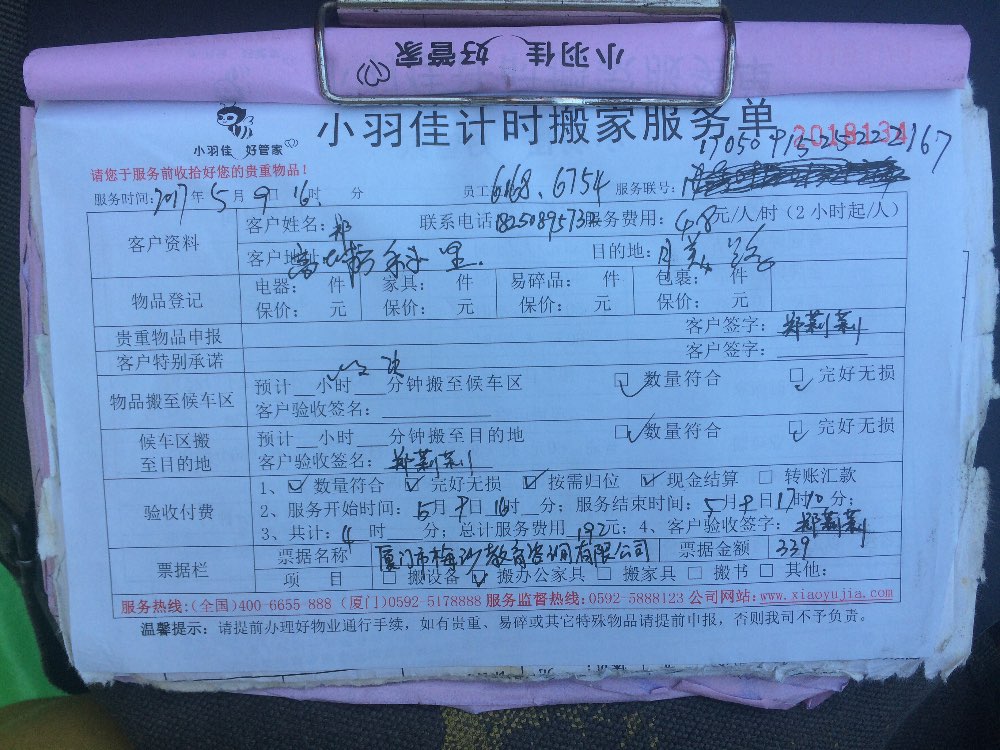 小羽佳 好管家
小羽佳 好管家
小羽佳计时搬家服务单
2018134
17050915252222167
请您于服务前收拾好您的贵重物品！
服务时间：2017年5月9日16时 分 员工 668、6754 服务联号：
客户资料 客户姓名：郑 联系电话 服务费用：48元/人/时（2小时起/人）
客户地址： 里 目的地：月美路
物品登记 电器： 件 家具： 件 易碎品： 件 包裹： 件
保价： 元 保价： 元 保价： 元 保价： 元
贵重物品申报 客户签字：郑莉莉
客户特别承诺 客户签字：
物品搬至候车区 预计 小时 分钟搬至候车区 数量符合 完好无损
客户验收签名：
候车区搬至目的地 预计 小时 分钟搬至目的地 数量符合 完好无损
客户验收签名：郑莉莉
验收付费 1、数量符合 完好无损 按需归位 现金结算 转账汇款
2、服务开始时间：5月9日16时 分；服务结束时间：5月9日17时10分；
3、共计：4时 分；总计服务费用192元；4、客户验收签字：郑莉莉
票据栏 票据名称 厦门市梅沙教育咨询有限公司 票据金额 339
项 目 搬设备 搬办公家具 搬家具 搬书 其他：
服务热线：(全国)400-6655-888 (厦门)0592-5178888 服务监督热线：0592-5888123 公司网站：www.xiaoyujia.com
温馨提示：请提前办理好物业通行手续，如有贵重、易碎或其它特殊物品请提前申报，否则我司不予负责。